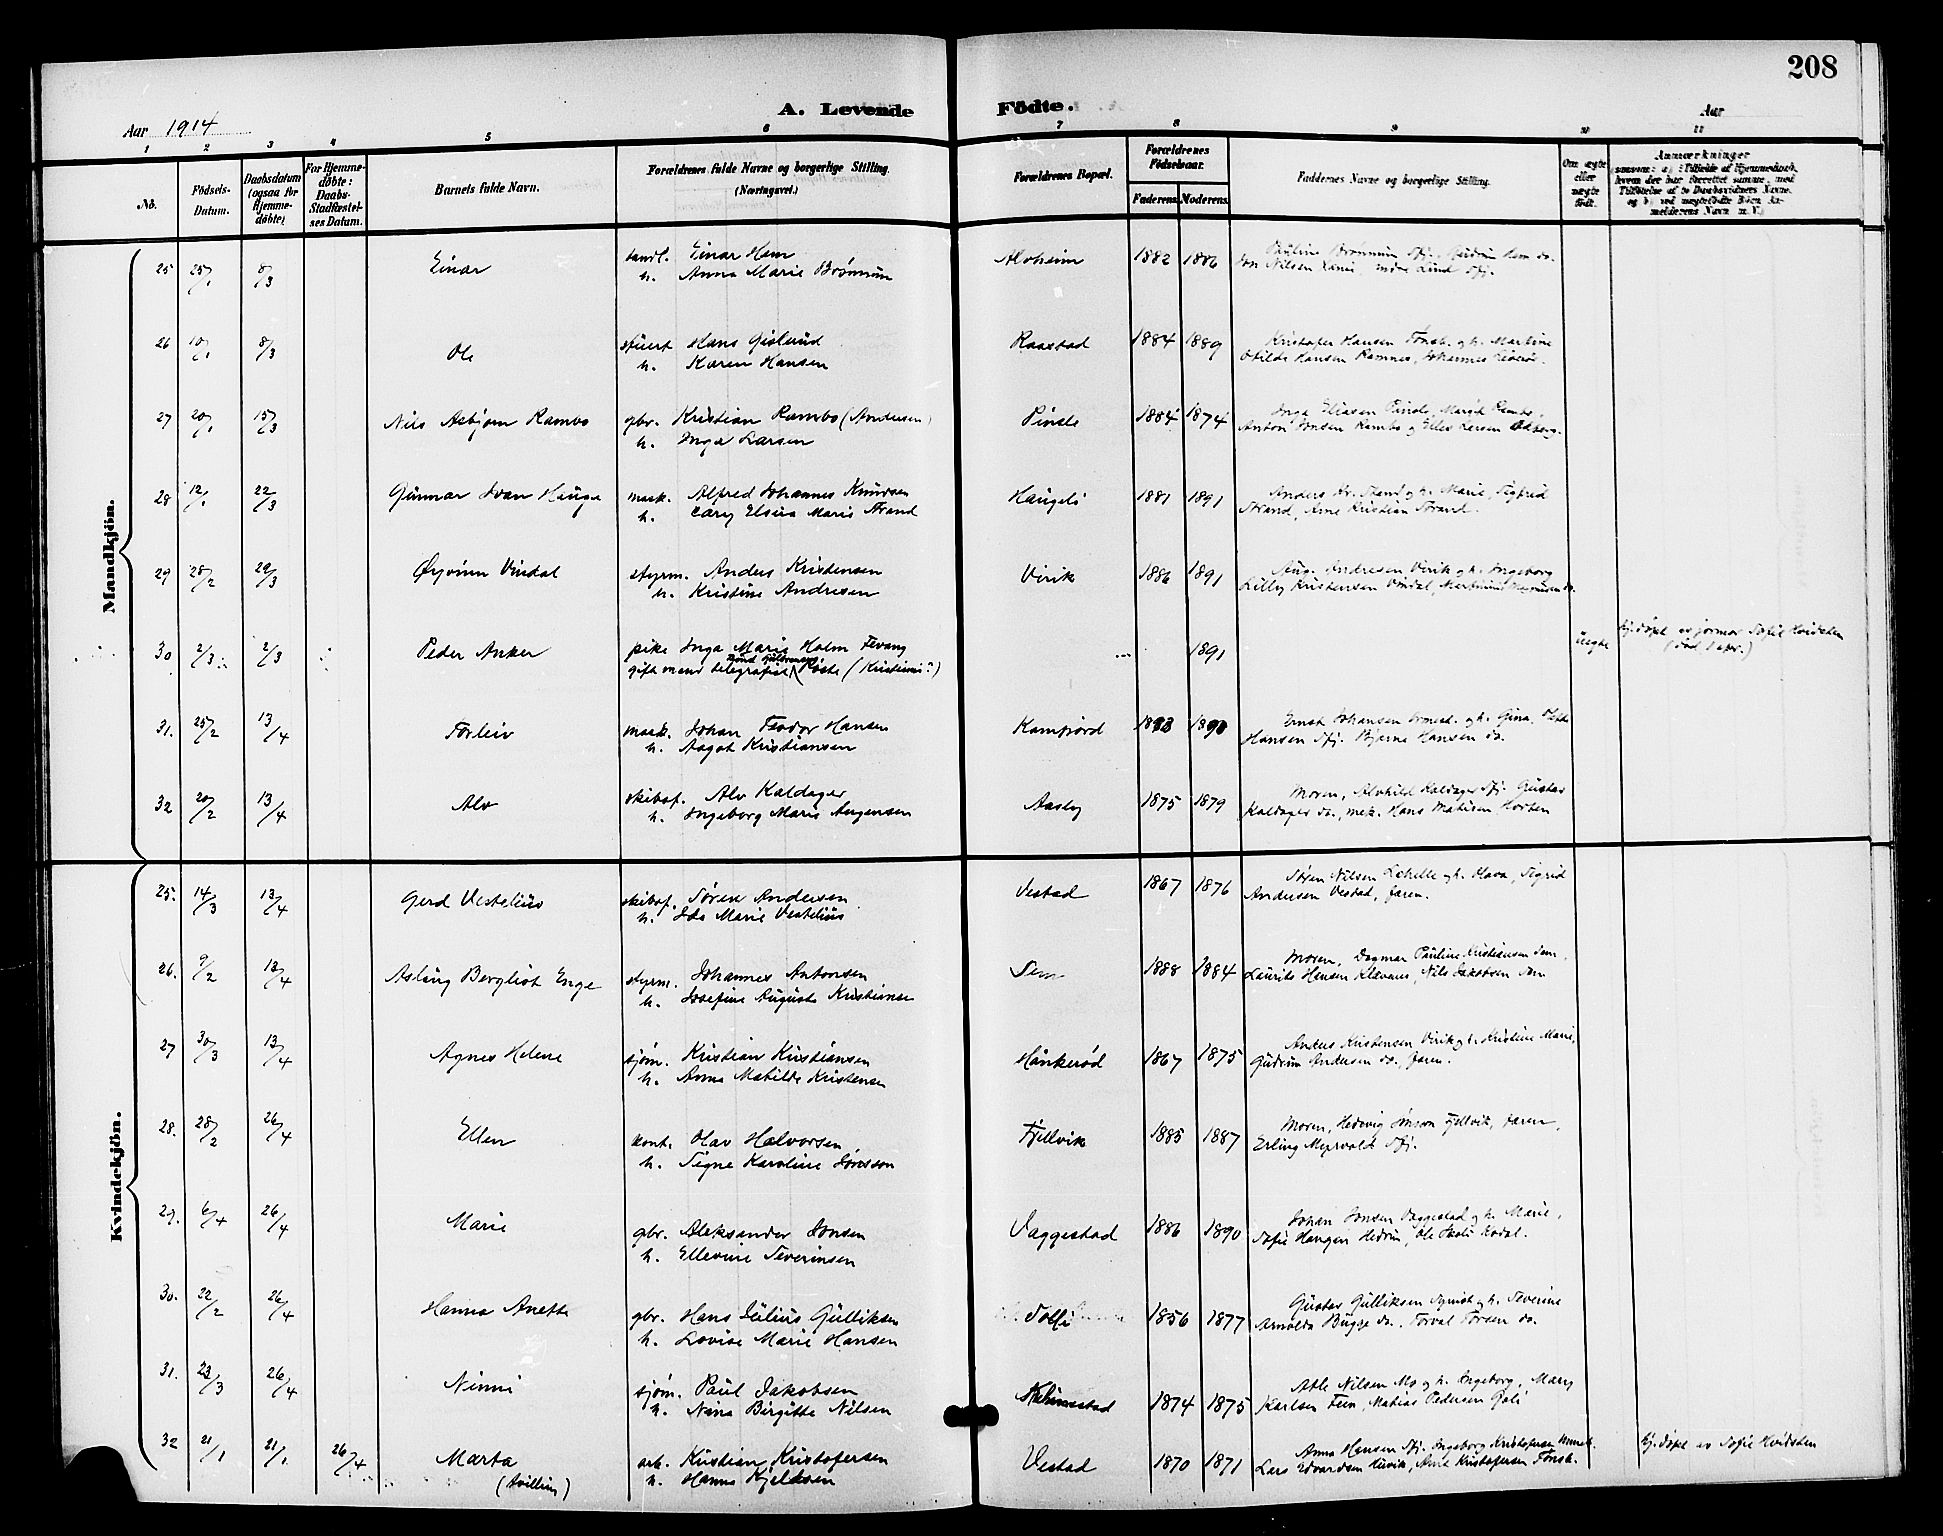 208
A. Levende Födte.
Aar 1914
Aar
1 2 3 4 5 6 7 8 9 10 11
No.
Födsels-Datum.
Daabsdatum (ogsaa for Hjemme-döbte)
For Hjemme-döbte: Daabs-Stadfæstel-ses Datum.
Barnets fulde Navn.
Forældrenes fulde Navne og borgerlige Stilling. (Næringsvei.)
Forældrenes Bopæl.
Forældrenes Födselsaar.
Faderens. Moderens.
Faddernes Navne og borgerlige Stilling.
Om ægte eller uægte födt.
Anmærkninger
Mandkjön.
25 25/1 8/3 Einar
Einar Hem
h. Anna Marie Brømnum
1882 1886
26 10/1 8/3 Ole
stuert Hans Gislund
h. Karen Hansen
Raastad 1884 1889
Kristofer Hansen Fonst. g h. Martine
Otilde Hansen Ramnes, Johannes
27 20/1 15/3 Nils Asbjørn Rambo
gbr. Kristian Rambo (Andersen)
h. Inga Larsen
Pindle 1884 1874
Inga Eliasen Pindle,
Anton Jonsen Rambo g
28 12/1 22/3 Gunnar Ivan Hauge
mask. Alfred Johannes Knudsen
h. Elvira Marie Strand
Haugeli 1881 1891
Anders Kr. Strand g h. Marie, Sigfrid
Strand, Arne Kristian Strand.
29 28/2 29/3 Øyvinn Vindal
styrm. Anders Kristensen
h. Kristine Andresen
Virik 1886 1891
Aug. Andresen Virik g h. Ingeborg
Lilly Kristensen Vindal,
30 2/3 2/3 Peder Anker
pike Inga Marie Holm Fevang
gift mand telegrafist Røste (Kristiania?)
1891
uegte
Hj. døpt av jormor Sofie Hvidsten
(død 1 apr.)
31. 25/2 13/4 Torleiv
mask. Johan Teodor Hansen
h. Aagot Kristiansen
Kamfjord 1890
Ernst Johansen g h. Gina.
Hansen Sfj. Bjarne Hansen do.
32 20/2 13/4 Alv
skibsf. Alv Kaldager
h. Ingeborg Marie Jørgensen
Aasly 1875 1879
Moren, Alvhild Kaldager Sfj. Gustav
Kaldager do., mek. Hans Matisen Horten
Kvindekjön.
25. 14/3 13/4 Gerd Vestelius
skibsf. Søren Andersen
h. Ida Marie Vestelius
Vestad 1867 1876
Søren Nilsen g h. Hava, Sigrid
Andersen Vestad, faren.
26. 9/2 13/4 Aslaug Bergliot Enge
styrm. Johannes Antonsen
h. Josefine Augusta Kristiansen
Sem 1888 1884
Moren, Dagmar Pauline Kristiansen Sem,
Laurits Hansen Klavenes, Nils Jakobsen Sem
27 30/3 13/4 Agnes Helene
sjøm. Kristian Kristiansen
h. Anna Matilde Kristensen
Haukerød 1867 1875
Anders Kristensen Virik g h. Kristine Marie,
Gudrun Andersen do., faren.
28. 28/2 26/4 Ellen
kont. Olav Halvorsen
h. Signe Karoline Jonsson
Fjellvik 1885 1887
Moren, Hedevig Jonson Fjellvik, faren,
Erling Myrvold Sfj.
29. 6/4 26/4 Marie
gbr. Aleksander Jonsen
h. Ellevine Severinsen
Vaggestad 1886 1890
Johan Jonsen Vaggestad g h. Marie,
Sofie Haugen Hedrum, Ole Skoli Kodal.
30. 22/2 26/4 Hanna Anette
gbr. Hans Julius Gulliksen
h. Lovise Marie Hansen
Solli 1856 1877
Gustav Gulliksen g h. Severine
Arnolda Bugge do. Torval Torsen do.
31. 23/3 26/4 Ninni
sjøm. Paul Jakobsen
h. Nina Birgitte Nilsen
1874 1875
Atle Nilsen Mo g h. Ingeborg, Marry
Karlsen Feen, Matias Pedersen
32 21/1 21/1 26/4 Marta
(tvilling)
arb. Kristian Kristofersen
h. Hanna Kjeldsen
Vestad 1870 1871
Anna Hansen Sfj. Ingeborg Kristofersen
Lars Edvardsen Huvik, Arne Kristofersen Fonst.
Hj. døpt av Sofie Hvidsten